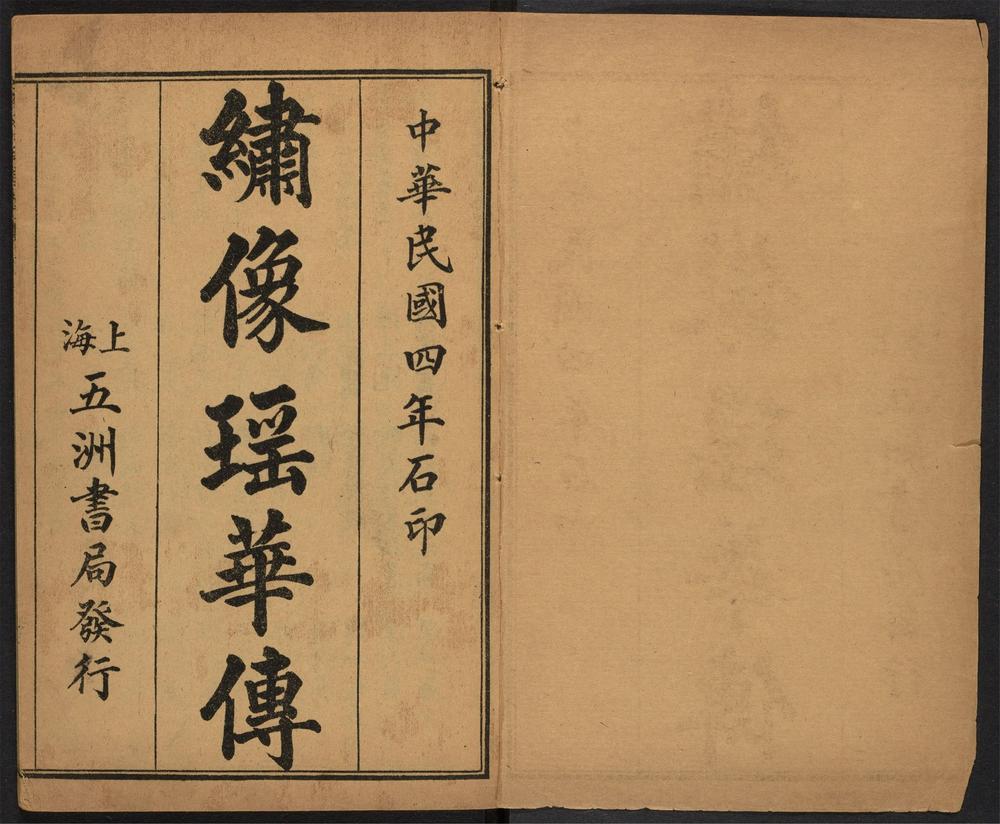 中華民國四年石印
繡像瑶華傳
上海五洲書局發行